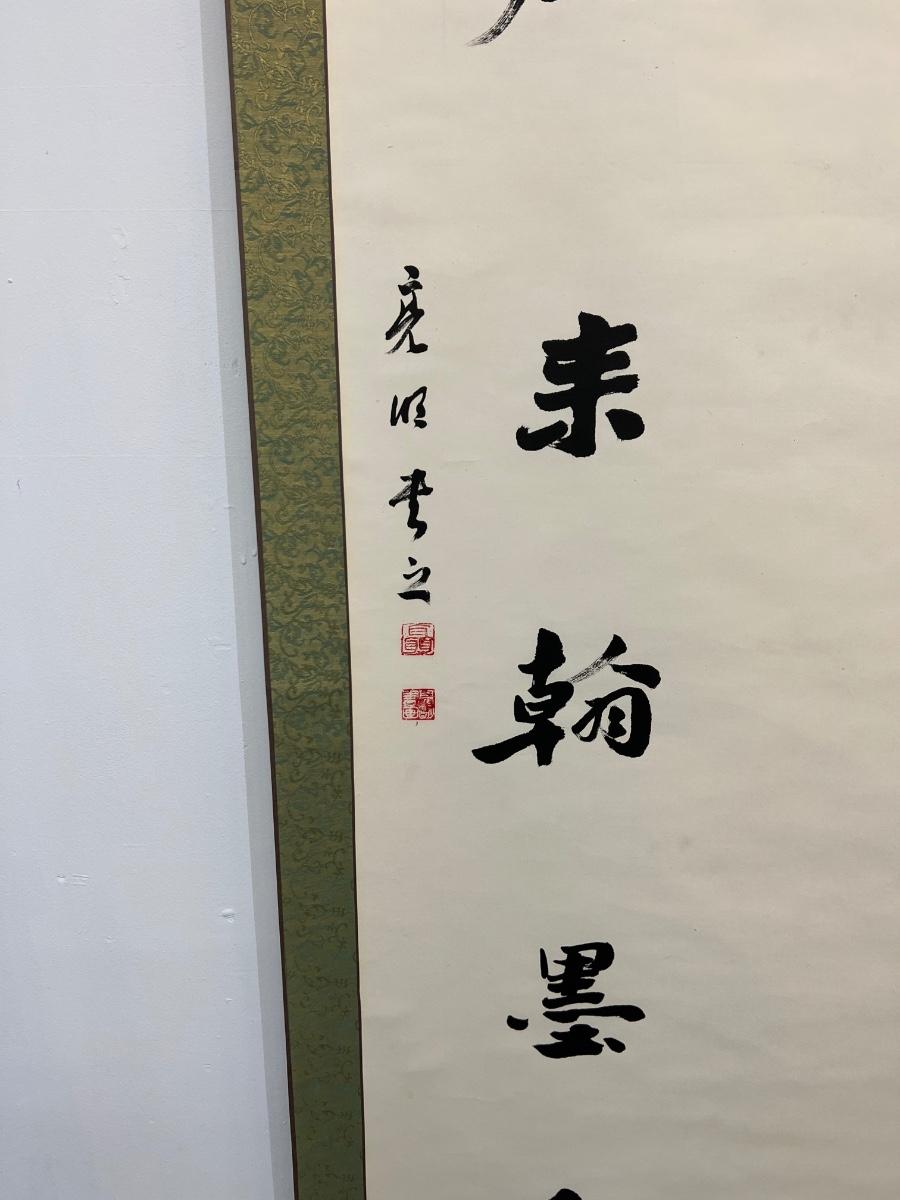 来翰墨
亮明書之